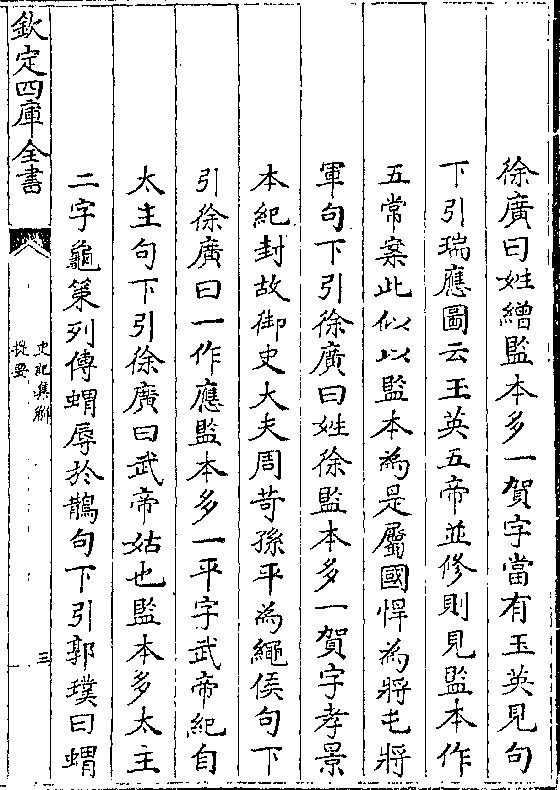 徐廣曰姓繒監本多一賀字當有玉英見句
下引瑞應圖云玉英五帝並修則見監本作
五常案此似以監本為是屬國悍為將屯將
軍句下引徐廣曰姓徐監本多一賀字孝景
本紀封故御史大夫周苛孫平為繩侯句下
引徐廣曰一作應監本多一平字武帝紀自
太主句下引徐廣曰武帝姑也監本多太主
二字龜策列傳蝟辱於鵲句下引郭璞曰蝟
欽定四庫全書
史記集解
提要
三